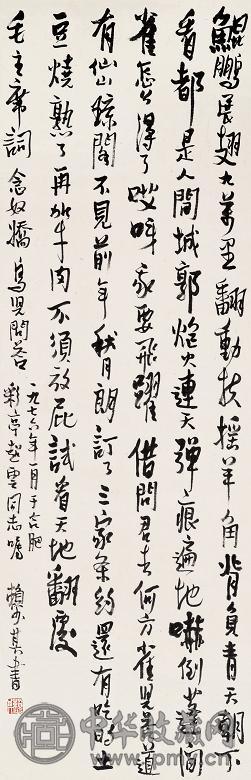 鲲鹏展翅九万里翻動扶摇羊角背負青天朝下
看都是人間城郭炮火連天彈痕遍地嚇倒蓬間
雀怎么得了哎呀我要飛躍借問君去何方雀兒答道
有仙山琼閣不見前年秋月朗訂了三家条約還有吃的土
豆燒熟了再加牛肉不須放屁試看天地翻覆
毛主席詞念奴嬌鳥兒問答
一九七六年一月于合肥
彩亭起雲同志囑
賴少其书
中华收藏网
www.sc001.com